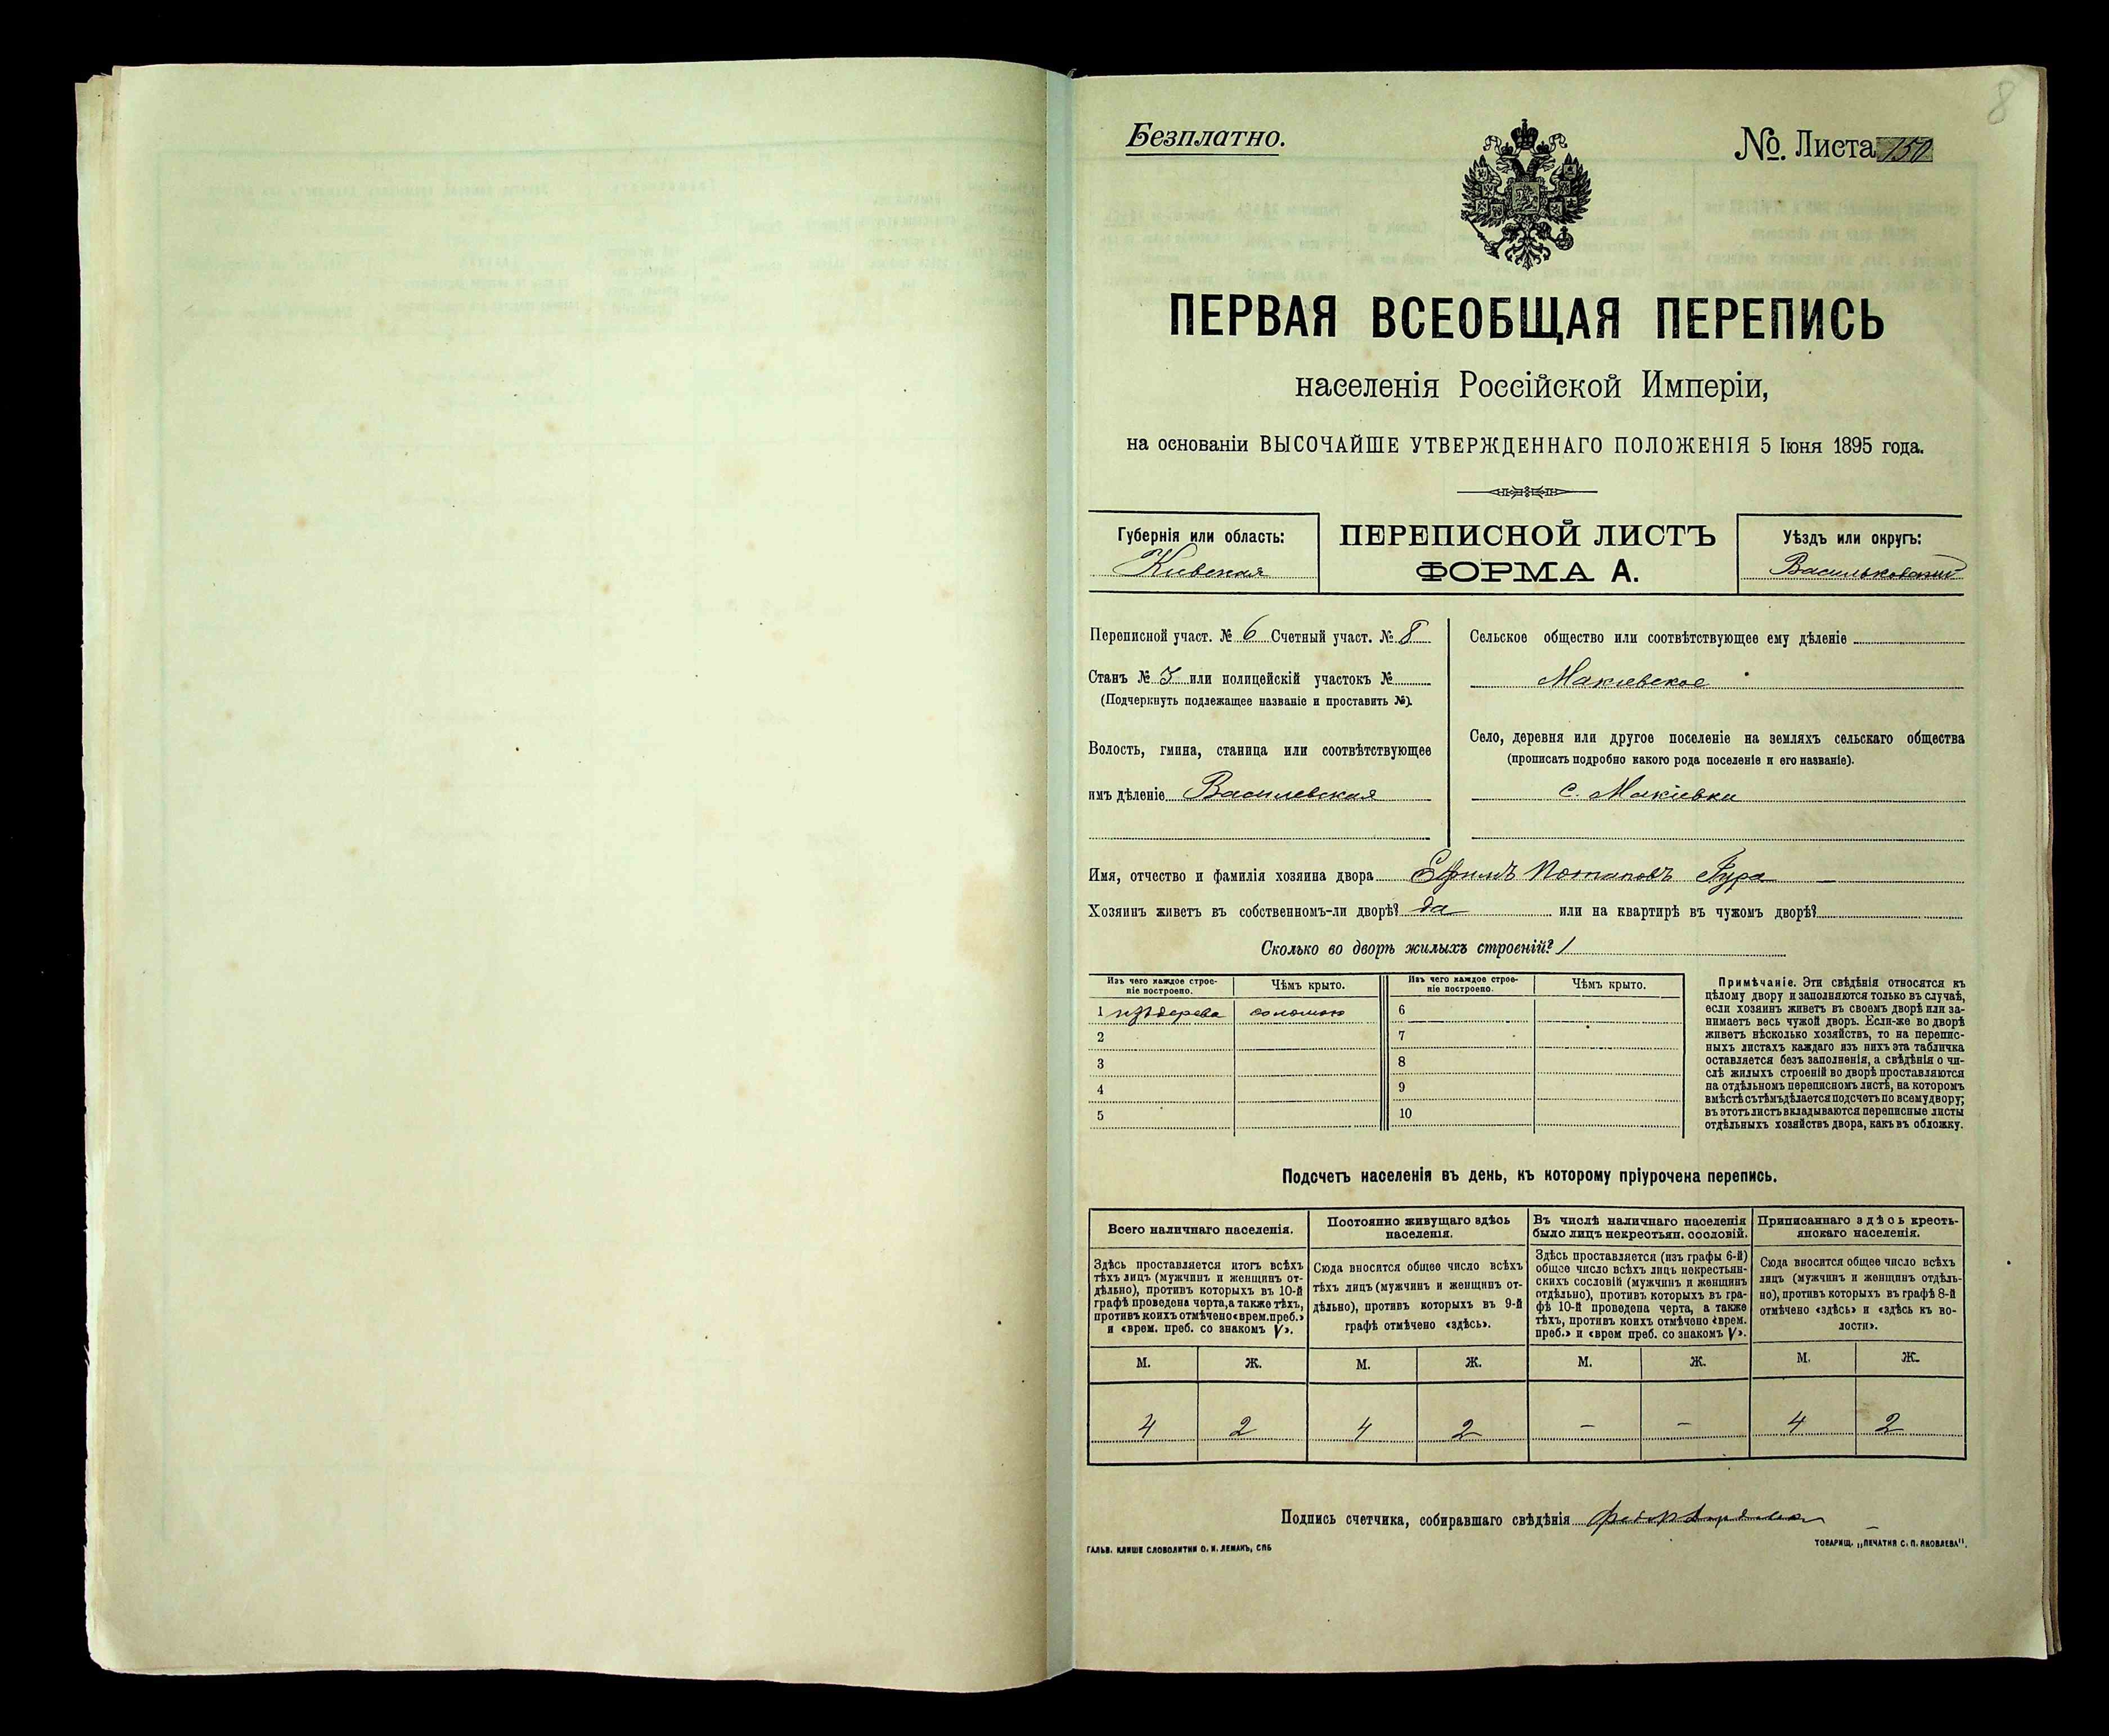 8
Безплатно.
№. Листа 150
ПЕРВАЯ ВСЕОБЩАЯ ПЕРЕПИСЬ
населенія Россійской Имперіи,
на основаніи ВЫСОЧАЙШЕ УТВЕРЖДЕННАГО ПОЛОЖЕНІЯ 5 Іюня 1895 года.
Губернія или область:
Киевская
ПЕРЕПИСНОЙ ЛИСТЪ
ФОРМА А.
Уѣздъ или округъ:
Васильковскій
Переписной участ. № 6 Счетный участ. № 8
Станъ № 3 или полицейскій участокъ №
(Подчеркнуть подлежащее названіе и проставить №).
Волость, гмина, станица или соотвѣтствующее
имъ дѣленіе Василевская
Сельское общество или соотвѣтствующее ему дѣленіе
Макиевское
Село, деревня или другое поселеніе на земляхъ сельскаго общества
(прописать подробно какого рода поселеніе и его названіе).
с. Макіевка
Имя, отчество и фамилія хозяина двора Ефимъ Потаповъ Гура
Хозяинъ живетъ въ собственномъ-ли дворѣ? да или на квартирѣ въ чужомъ дворѣ?
Сколько во дворѣ жилыхъ строеній? 1
Изъ чего каждое строе-
ніе построено.
Чѣмъ крыто.
Изъ чего каждое строе-
ніе построено.
Чѣмъ крыто.
1 изъ дерева соломою 6
2 7
3 8
4 9
5 10
Примѣчаніе. Эти свѣдѣнія относятся къ
цѣлому двору и заполняются только въ случаѣ,
если хозяинъ живетъ въ своемъ дворѣ или за-
нимаетъ весь чужой дворъ. Если-же во дворѣ
живетъ нѣсколько хозяйствъ, то на перепис-
ныхъ листахъ каждаго изъ нихъ эта табличка
оставляется безъ заполненія, а свѣдѣнія о чи-
слѣ жилыхъ строеній во дворѣ проставляются
на отдѣльномъ переписномъ листѣ, на которомъ
вмѣстѣ съ тѣмъ дѣлается подсчетъ по всему двору;
въ этотъ листъ вкладываются переписные листы
отдѣльныхъ хозяйствъ двора, какъ въ обложку.
Подсчетъ населенія въ день, къ которому пріурочена перепись.
Всего наличнаго населенія.
Здѣсь проставляется итогъ всѣхъ
тѣхъ лицъ (мужчинъ и женщинъ от-
дѣльно), противъ которыхъ въ 10-й
графѣ проведена черта, а также тѣхъ,
противъ коихъ отмѣчено «врем. преб.»
и «врем. преб. со знакомъ V».
Постоянно живущаго здѣсь
населенія.
Сюда вносится общее число всѣхъ
тѣхъ лицъ (мужчинъ и женщинъ от-
дѣльно), противъ которыхъ въ 9-й
графѣ отмѣчено «здѣсь».
Въ числѣ наличнаго населенія
было лицъ некрестьян. сословій.
Здѣсь проставляется (изъ графы 6-й)
общее число всѣхъ лицъ некрестьян-
скихъ сословій (мужчинъ и женщинъ
отдѣльно), противъ которыхъ въ гра-
фѣ 10-й проведена черта, а также
тѣхъ, противъ коихъ отмѣчено «врем.
преб.» и «врем преб. со знакомъ V».
Приписаннаго здѣсь кресть-
янскаго населенія.
Сюда вносится общее число всѣхъ
лицъ (мужчинъ и женщинъ отдѣль-
но), противъ которыхъ въ графѣ 8-й
отмѣчено «здѣсь» и «здѣсь къ во-
лости».
М. Ж. М. Ж. М. Ж. М. Ж.
4 2 4 2 – – 4 2
Подпись счетчика, собиравшаго свѣдѣнія
ГАЛЬВ. КЛИШЕ СЛОВОЛИТНИ О. И. ЛЕМАНЪ, СПБ
ТОВАРИЩ. „ПЕЧАТНЯ С. П. ЯКОВЛЕВА".